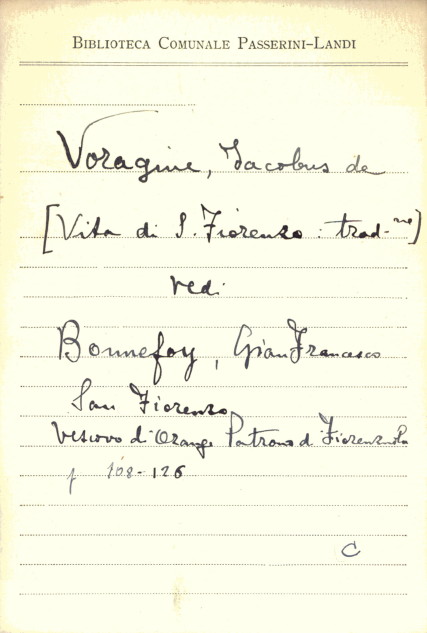 BIBLIOTECA COMUNALE PASSERINI-LANDI
Voragine, Jacobus de
[Vita di S. Fiorenzo: trad.ne]
vedi
Bonnefoy, GianFrancesco
San Fiorenzo
Vescovo d'Orange Patrono d Fiorenzuola
p 108-126
C